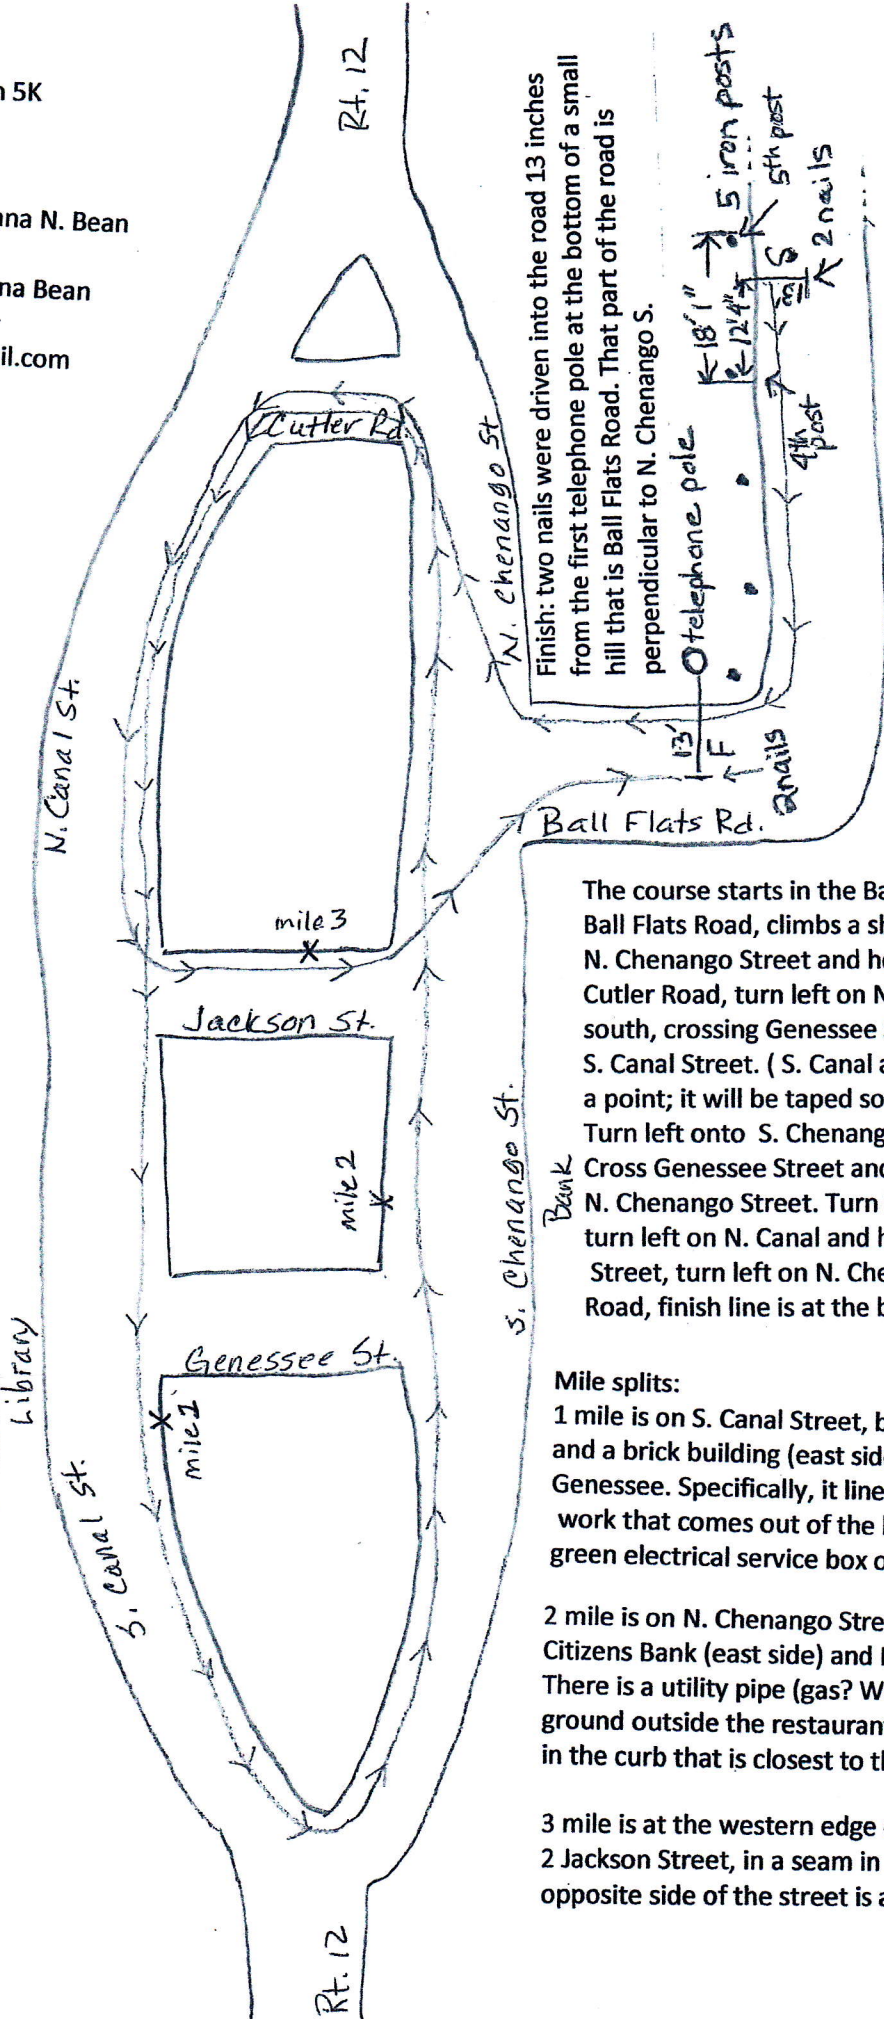 n 5K
nna N. Bean
na Bean
il.com
Rt. 12
Cutler Rd.
N. Chenango St
N. Canal St.
Finish: two nails were driven into the road 13 inches
from the first telephone pole at the bottom of a small
hill that is Ball Flats Road. That part of the road is
perpendicular to N. Chenango S.
5 iron posts
5th post
2 nails
S
18' 1"
12'4"
4th
post
telephone pole
13'
F
2 nails
Ball Flats Rd.
mile 3
Jackson St.
mile 2
S. Chenango St.
Bank
Genessee St.
Library
mile 1
S. Canal St.
Rt. 12
The course starts in the Ba
Ball Flats Road, climbs a sh
N. Chenango Street and he
Cutler Road, turn left on N
south, crossing Genessee
S. Canal Street. ( S. Canal a
a point; it will be taped so
Turn left onto S. Chenang
Cross Genessee Street and
N. Chenango Street. Turn
turn left on N. Canal and h
Street, turn left on N. Che
Road, finish line is at the b
Mile splits:
1 mile is on S. Canal Street, b
and a brick building (east sid
Genessee. Specifically, it line
work that comes out of the
green electrical service box o
2 mile is on N. Chenango Stre
Citizens Bank (east side) and
There is a utility pipe (gas? W
ground outside the restaurant
in the curb that is closest to th
3 mile is at the western edge
2 Jackson Street, in a seam in
opposite side of the street is a